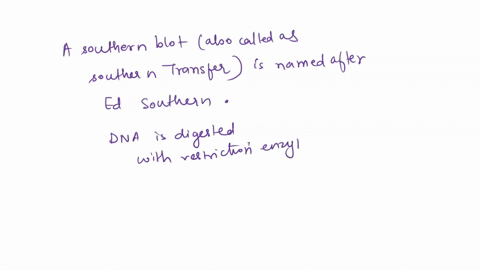 A southern blot (also called as
southern Transfer) is named after
Ed Southern.
DNA is digested
with restriction enzyl